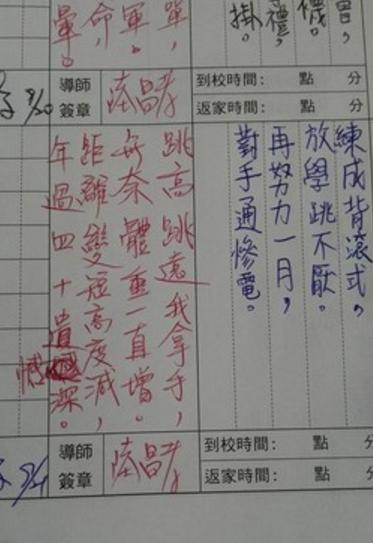 襪。
禮，
掛。
單，
軍。
命，
暈。
導師
簽章
到校時間： 點 分
返家時間： 點 分
練成背滾式，
放學跳不厭。
再努力一月，
對手通慘電。
跳高跳遠我拿手，
無奈體重一直增。
距離變短高度減，
年過四十遺憾深。
導師
簽章
到校時間： 點 分
返家時間： 點 分